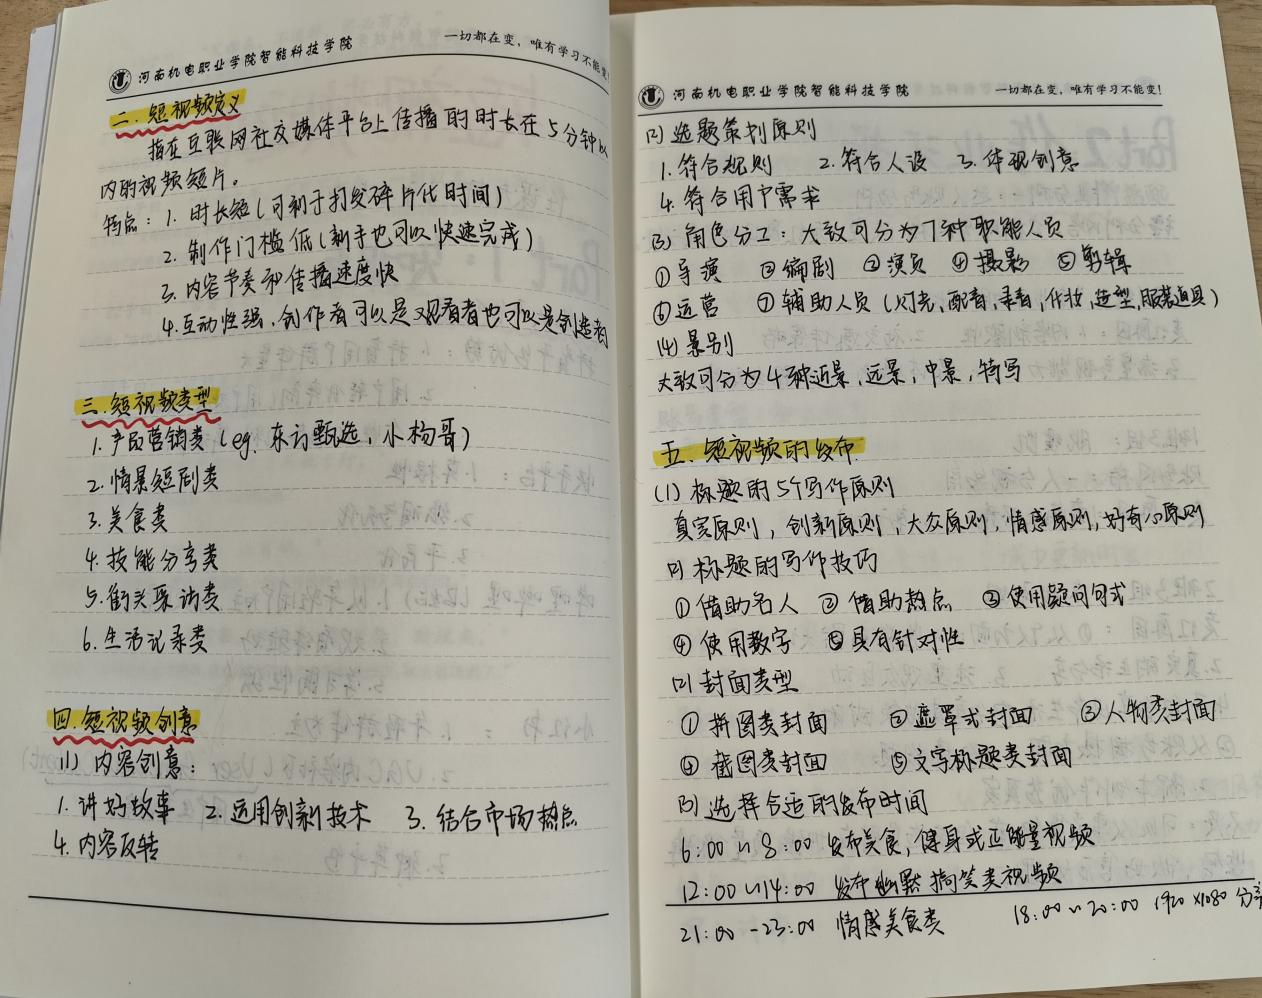 河南机电职业学院智能科技学院 一切都在变，唯有学习不能变！
二.短视频定义
指在互联网社交媒体平台上传播的时长在5分钟以
内的视频短片。
特点：1. 时长短（可利于打发碎片化时间）
2. 制作门槛低（新手也可以快速完成）
3. 内容节奏和传播速度快
4. 互动性强，创作者可以是观看者也可以是创造者
三.短视频类型
1. 产品营销类（eg. 东方甄选，小杨哥）
2. 情景短剧类
3. 美食类
4. 技能分享类
5. 街头采访类
6. 生活记录类
四.短视频创意
(1) 内容创意：
1. 讲好故事 2. 运用创新技术 3. 结合市场热点
4. 内容反转
河南机电职业学院智能科技学院 一切都在变，唯有学习不能变！
(2) 选题策划原则
1. 符合规则 2. 符合人设 3. 体现创意
4. 符合用户需求
(3) 角色分工：大致可分为7种职能人员
①导演 ②编剧 ③演员 ④摄影 ⑤剪辑
⑥运营 ⑦辅助人员（灯光，配音，录音，化妆，造型，服装道具）
(4) 景别
大致可分为4种近景，远景，中景，特写
五.短视频的发布
(1) 标题的5个写作原则
真实原则，创新原则，大众原则，情感原则，好奇心原则
(2) 标题的写作技巧
①借助名人 ②借助热点 ③使用疑问句式
④使用数字 ⑤具有针对性
(2) 封面类型
①拼图类封面 ②遮罩式封面 ③人物类封面
④截图类封面 ⑤文字标题类封面
(3) 选择合适的发布时间
6:00~8:00 发布美食，健身或正能量视频
12:00~14:00 发布幽默搞笑类视频
21:00-23:00 情感美食类 18:00~20:00 1920×1080